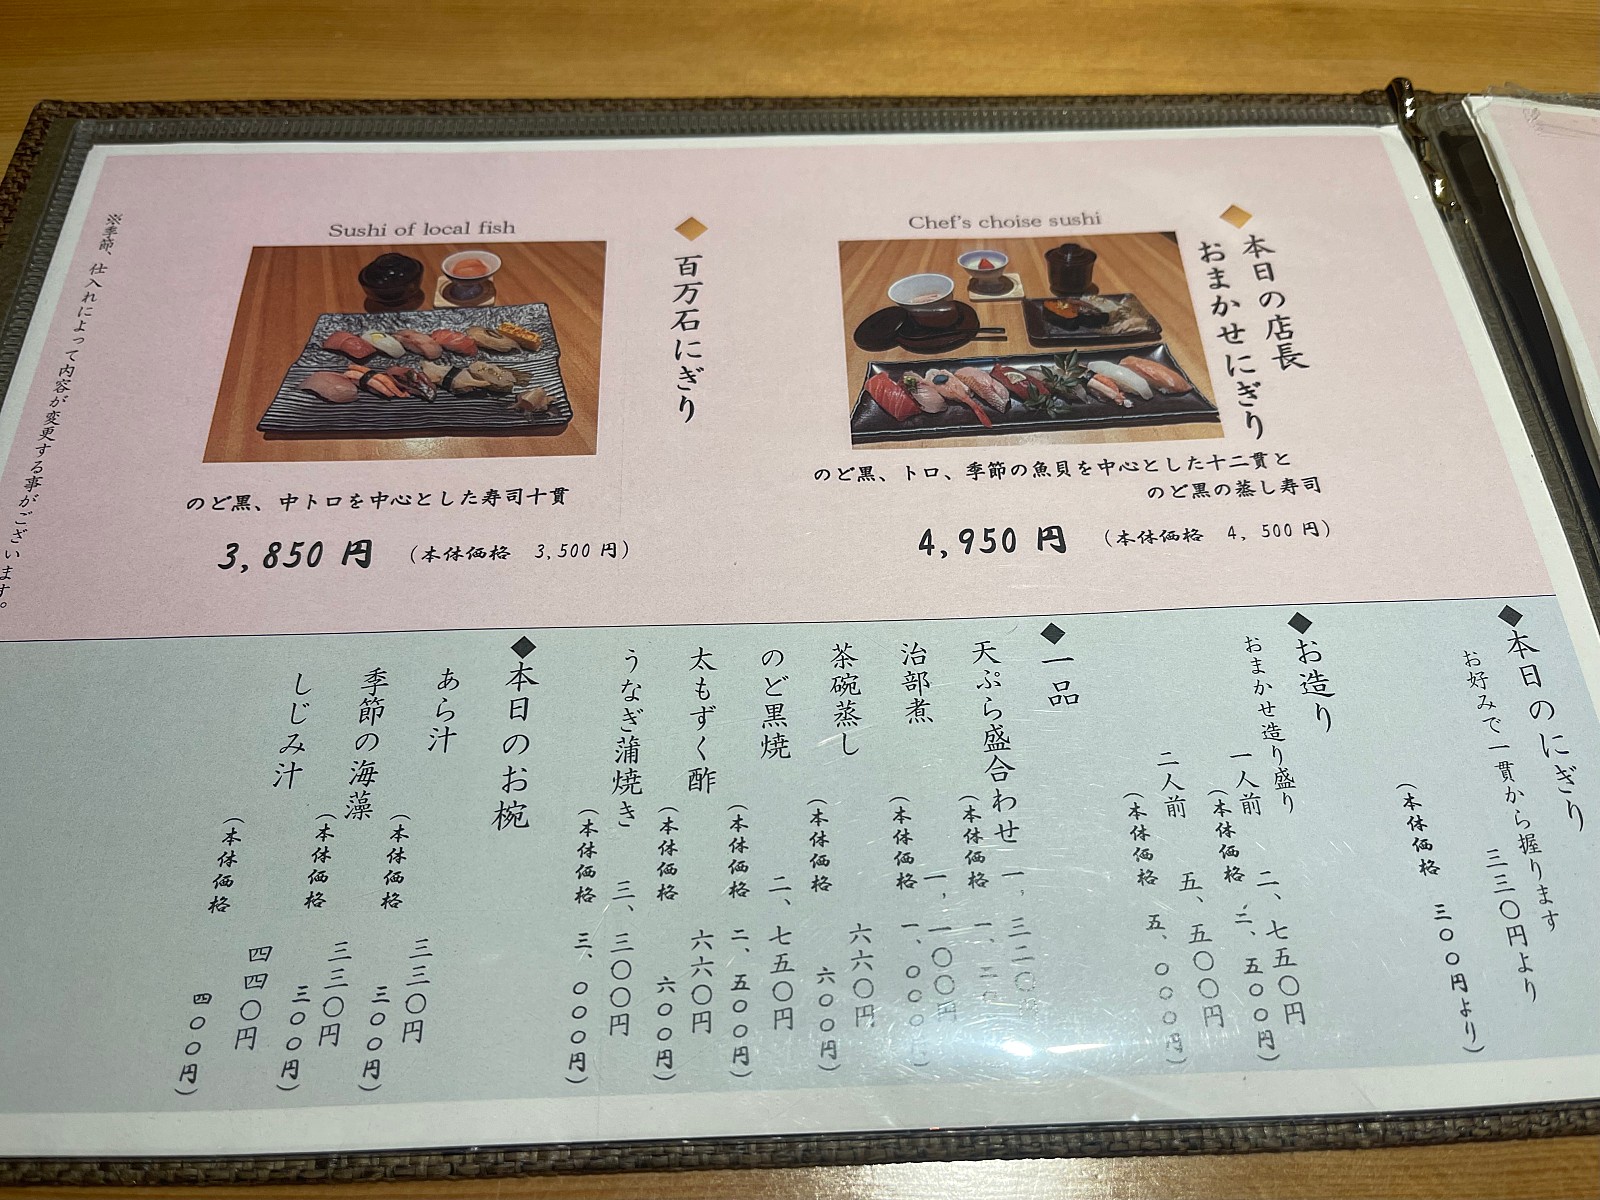 Chef's choise sushi
本日の店長
おまかせにぎり
のど黒、トロ、季節の魚貝を中心とした十二貫と
のど黒の蒸し寿司
4,950 円 (本体価格 4,500 円)
Sushi of local fish
百万石にぎり
のど黒、中トロを中心とした寿司十貫
3,850 円 (本体価格 3,500 円)
※季節、仕入れによって内容が変更する事がございます。
◆本日のにぎり
お好みで一貫から握ります
三三〇円より
(本体価格 三〇〇円より)
◆お造り
おまかせ造り盛り
一人前 二、七五〇円
(本体価格 二、五〇〇円)
二人前 五、五〇〇円
(本体価格 五、〇〇〇円)
◆一品
天ぷら盛合わせ 一、三二〇円
(本体価格 一、二〇
治部煮 一、一〇〇円
(本体価格 一、〇〇〇円)
茶碗蒸し 六六〇円
(本体価格 六〇〇円)
のど黒焼 二、七五〇円
(本体価格 二、五〇〇円)
太もずく酢 六六〇円
(本体価格 六〇〇円)
うなぎ蒲焼き 三、三〇〇円
(本体価格 三、〇〇〇円)
◆本日のお椀
あら汁 三三〇円
(本体価格 三〇〇円)
季節の海藻 三三〇円
(本体価格 三〇〇円)
しじみ汁 四四〇円
(本体価格 四〇〇円)